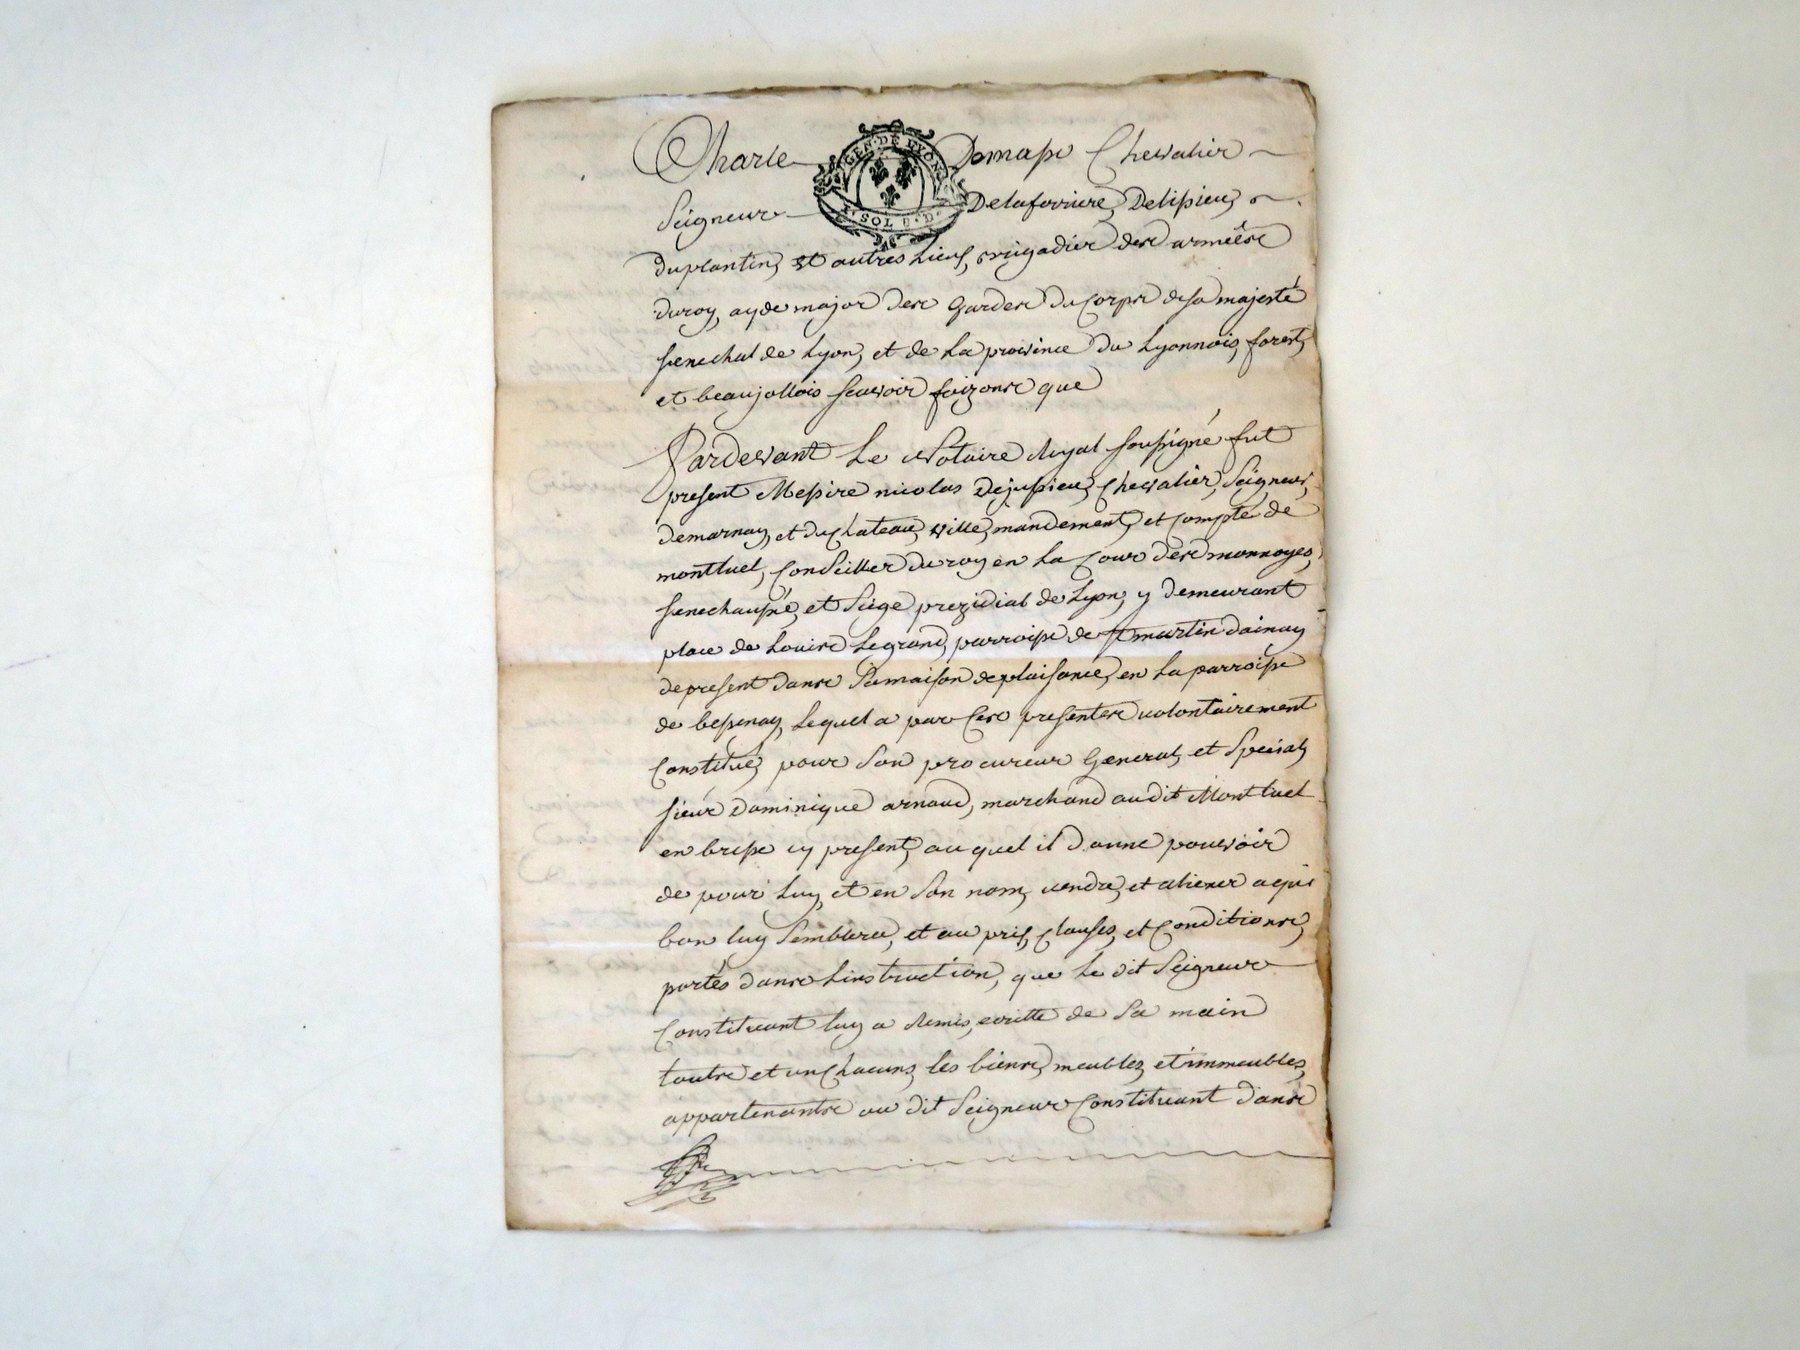 Charle Demasse Chevalier
GEN. DE LYON
Seigneur Delaferriere, Delissieu,
SOL
Duplantin, et autres Lieux, Brigadier des armées
du roy, ayde major des Gardes du Corps de sa majesté
senechal de Lyon, et de La province du Lyonnois, forest,
et beaujollois scavoir faizons que
Pardevant Le Notaire Royal soussigné fut
present Messire nicolas Dejussieu, Chevalier, Seigneur,
demarnay, et du Chateau, ville, mandement, et Compté de
montluel, Conseiller du roy en La Cour des monnoyes,
senechaussé, et Siége prezidial de Lyon, y demeurant
place de Louis Legrand, parroisse de st martin dainay
depresent dans Samaison deplaisance, en La parroisse
de bessenay, Lequel a par Ces presentes volontairement
Constitué, pour Son procureur General, et Special,
sieur Dominique arnaud, marchand audit Montluel
en bresse cy present, auquel il Donne pouvoir
de pour Luy, et en Son nom, vendre, et aliener aqui
bon luy Semblera, et au prix, Clauses, et Conditions,
portés dans Linstruction, que Le dit Seigneur
Constituant luy a Remis, ecritte de Sa main
touts et un Chacuns, les biens, meubles, et immeubles,
appartenants au dit Seigneur Constituant dans